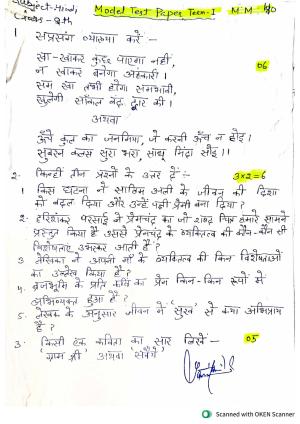 Subject-Hindi Model Test Paper Term-I M.M-
Class- 9th
1 सप्रसंग व्याख्या करें -
खा-खाकर कुछ पाएगा नहीं,
न खाकर बनेगा अहंकारी।
06
सम खा तभी होगा समभावी,
खुलेगी साँकल बंद द्वार की।
अथवा
ऊँचे कुल का जनमिया, जे करनी ऊँच न होइ।
सुबरन कलस सुरा भरा, साधू निंदा सोइ।।
2- किन्हीं तीन प्रश्नों के उत्तर दें - 3×2=6
1 किस घटना ने सालिम अली के जीवन की दिशा
को बदल दिया और उन्हें पक्षी प्रेमी बना दिया?
2. हरिशंकर परसाई ने प्रेमचंद का जो शब्द चित्र हमारे सामने
प्रस्तुत किया है उससे प्रेमचंद के व्यक्तित्व की कौन कौन सी
विशेषताएं उभरकर आती हैं?
3 लेखिका ने अपनी माँ के व्यक्तित्व की किन विशेषताओं
का उल्लेख किया है?
4. ब्रजभूमि के प्रति कवि का प्रेम किन-किन रूपों में
अभिव्यक्त हुआ है?
5. लेखक के अनुसार जीवन में 'सुख' से क्या अभिप्राय
है?
3. किसी एक कविता का सार लिखें - 05
'ग्राम श्री' अथवा 'सवैये'
Scanned with OKEN Scanner